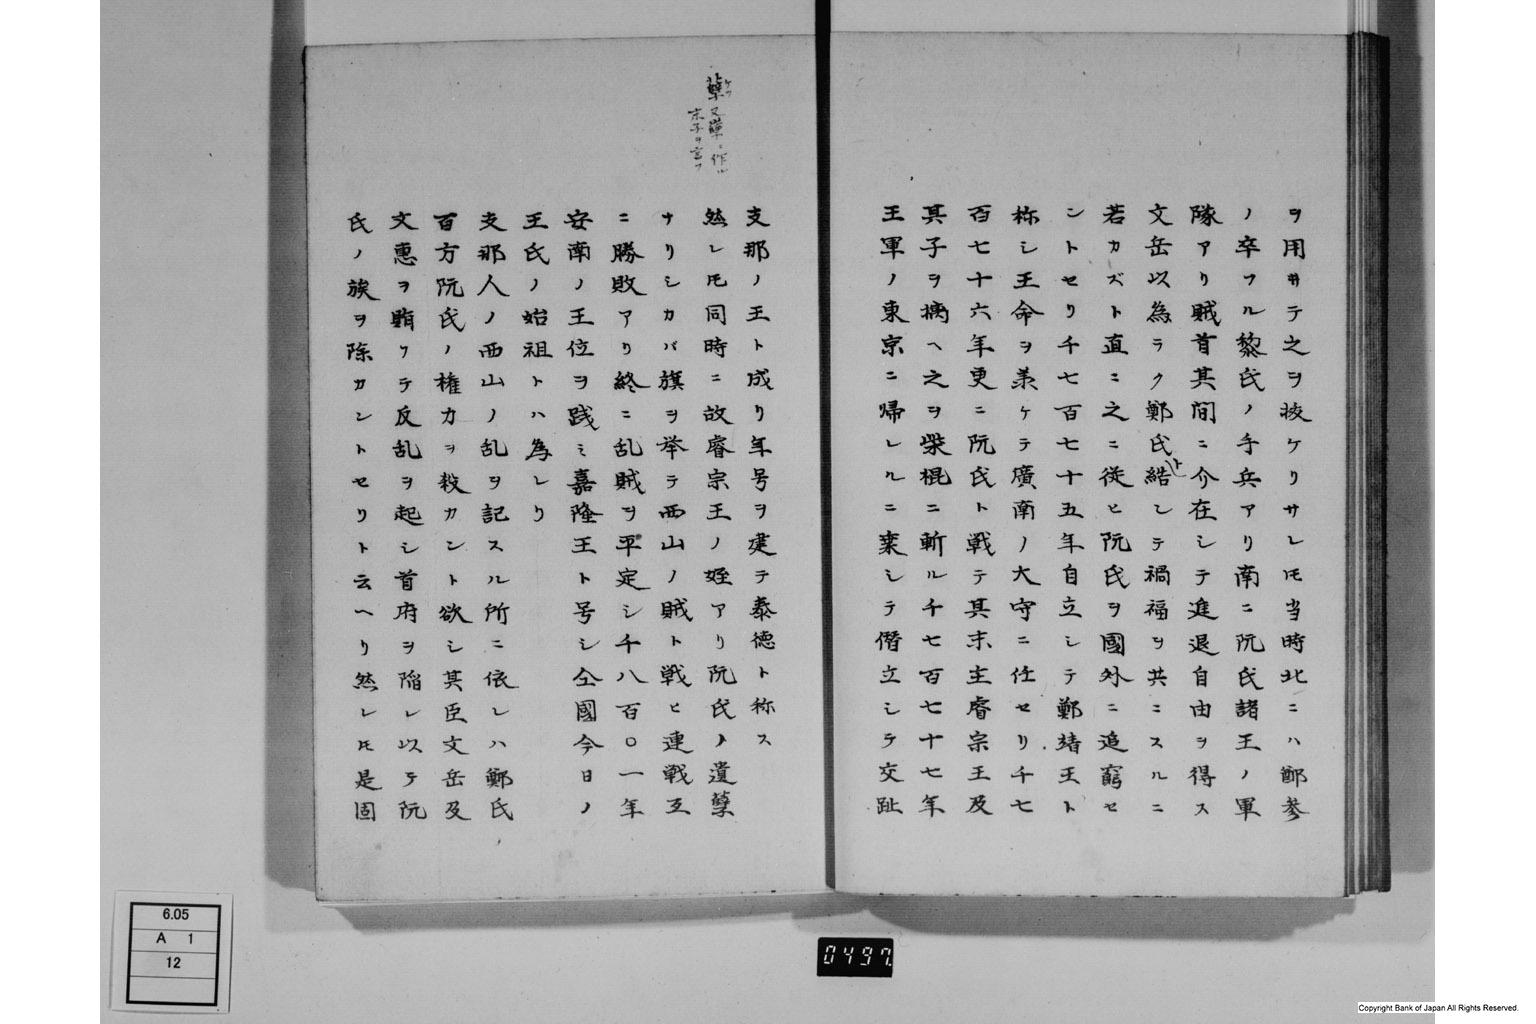 ヲ用井テ之ヲ抜ケリサレ𪜈当時北ニハ鄭参
ノ卒フル黎氏ノ手兵アリ南ニ阮氏諸王ノ軍
隊アリ賊首其間ニ介在シテ進退自由ヲ得ス
文岳以為ラク鄭氏ト結シテ禍福ヲ共ニスルニ
若カズト直ニ之ニ従ヒ阮氏ヲ國外ニ追窮セ
ントセリ千七百七十五年自立シテ鄭靖王ト
称シ王命ヲ承ケテ廣南ノ大守ニ任セリ千七
百七十六年更ニ阮氏ト戦テ其末主睿宗王及
其子ヲ擒ヘ之ヲ柴棍ニ斬ル千七百七十七年
王軍ノ東京ニ帰レルニ乗シテ僭立シテ交趾
支那ノ王ト成リ年号ヲ建テ泰德ト称ス
然レ𪜈同時ニ故睿宗王ノ姪アリ阮氏ノ遺孽
ナリシカバ旗ヲ挙テ西山ノ賊ト戦ヒ連戦互
ニ勝敗アリ終ニ乱賊ヲ平定シ千八百〇一年
安南ノ王位ヲ践ミ嘉隆王ト号シ仝國今日ノ
王氏ノ始祖トハ為レリ
支那人ノ西山ノ乱ヲ記スル所ニ依レハ鄭氏
百方阮氏ノ権力ヲ殺カント欲シ其臣文岳及
文惠ヲ賄フテ反乱ヲ起シ首府ヲ陥レ以テ阮
氏ノ族ヲ除カントセリト云ヘリ然レ𪜈是固
孽ケツ又孼ニ作ル
末子ヲ言フ
6.05
A 1
12
0497
Copyright Bank of Japan All Rights Reserved.